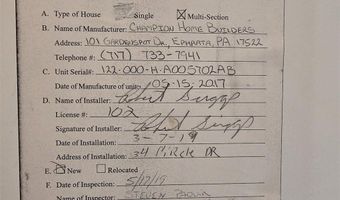 A. Type of House Single Multi-Section
B. Name of Manufacturer: CHAMPION HOME BUILDERS
Address: 101 GARDENSPOT DR, EPHRATA, PA 17522
Telephone #: (717) 733-7941
C. Unit Serial#: 122-000-H-A005702AB
Date of Manufacture of unit: 05-15-2017
D. Name of Installer: Robert
License #: 102
Signature of Installer: Robert
Date of Installation: 3-7-19
Address of Installation: 34 DR
E. New Relocated
F. Date of Inspection: 5/17/19
Name of Inspector: STEVEN